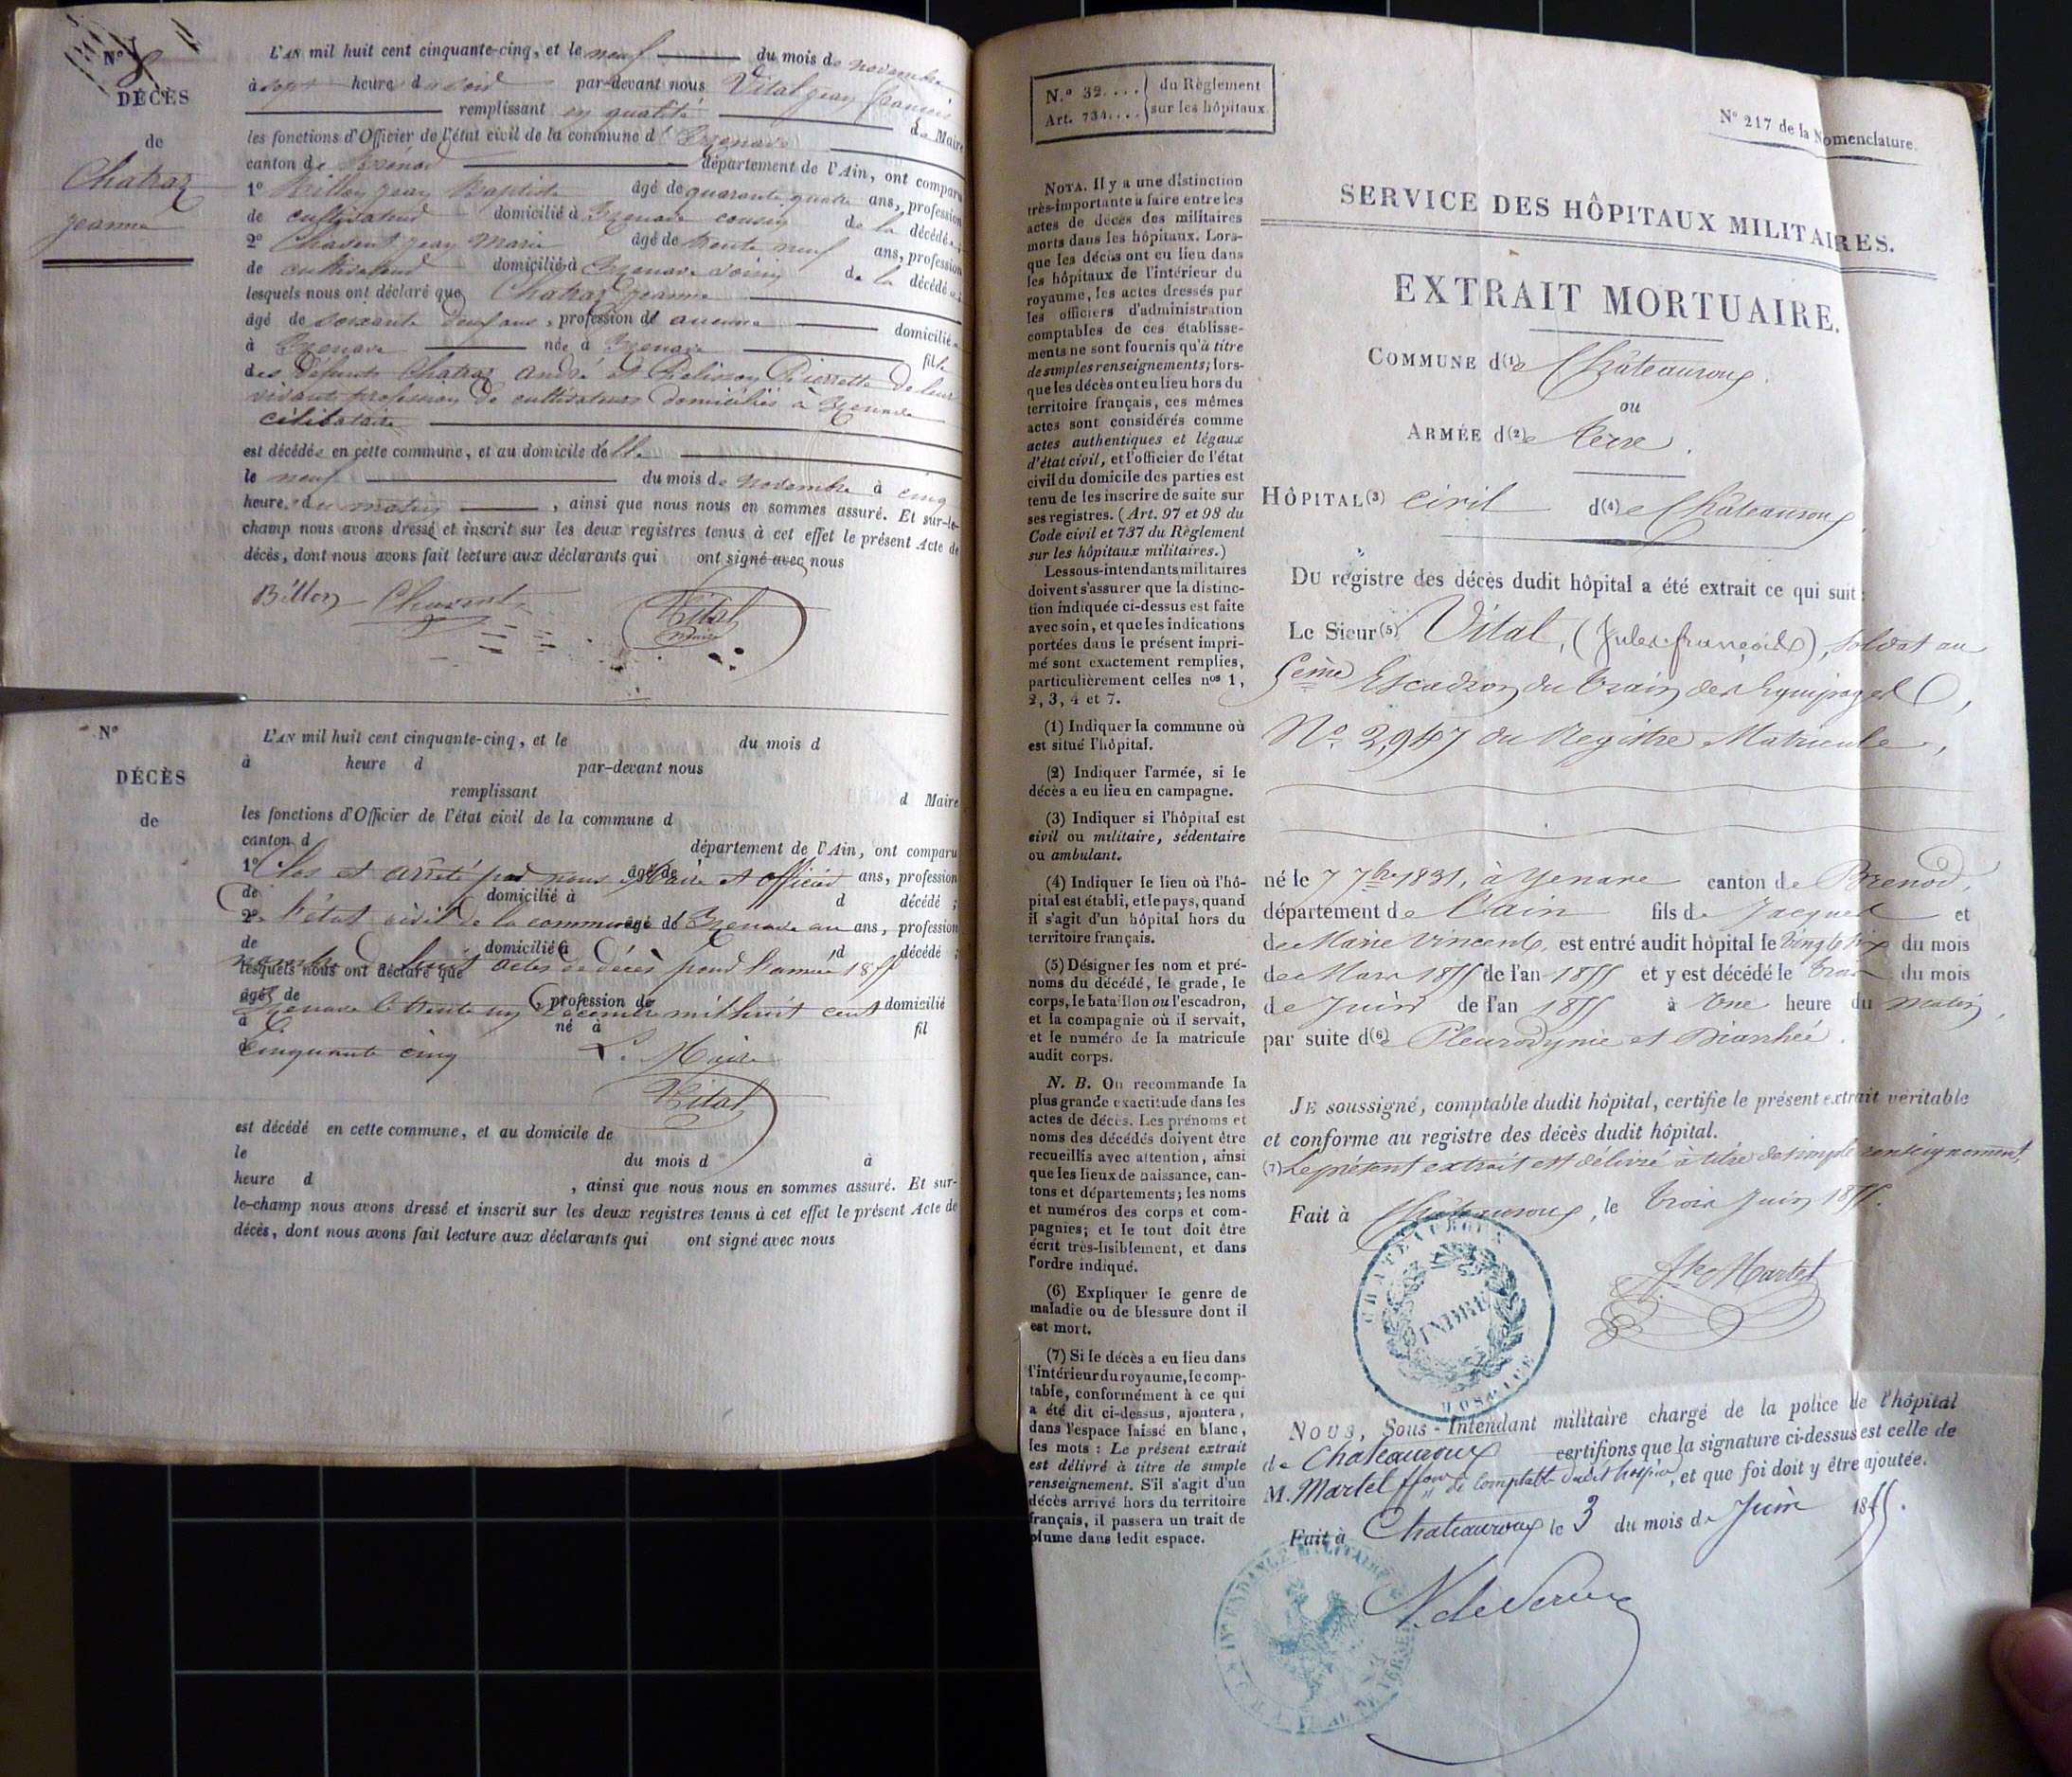 N° 8
DÉCÈS
de
Chatraz
jeanne
L'AN mil huit cent cinquante-cinq, et le neuf du mois de novembre
à sept heure du soir par-devant nous Vital jean françois
remplissant en qualité de Maire
les fonctions d'Officier de l'état civil de la commune d'Izenave
canton de Brénod département de l'Ain, ont comparu
1° Billon jean Baptiste âgé de quarante quatre ans, profession
de cultivateur domicilié à Izenave cousin de la décédée;
2° Chavent jean Marie âgé de trente neuf ans, profession
de cultivateur domicilié à Izenave voisin de la décédée;
lesquels nous ont déclaré que Chatraz jeanne
âgé de soixante deux ans, profession de aucune domiciliée
à Izenave née à Izenave fille
des défunts Chatraz andré et Pierrette de leur
vivant profession de cultivateurs domiciliés à Izenave
célibataire
est décédée en cette commune, et au domicile delle
le neuf du mois de novembre à cinq
heure du matin, ainsi que nous nous en sommes assuré. Et sur-le-
champ nous avons dressé et inscrit sur les deux registres tenus à cet effet le présent Acte de
décès, dont nous avons fait lecture aux déclarants qui ont signé avec nous
Billon Chavent Vital
maire
N°
DÉCÈS
de
L'AN mil huit cent cinquante-cinq, et le du mois d
à heure d par-devant nous
remplissant d Maire
les fonctions d'Officier de l'état civil de la commune d
canton d département de l'Ain, ont comparu
1° âgé de ans, profession
Clos et arrêté par nous Maire et officier
de domicilié à d décédé;
2° âgé de ans, profession
De l'état civil de la commune de Izenave au
de domicilié à d décédé;
nombre de huit actes de décès pour l'année 1855
lesquels nous ont déclaré que
âgé de profession de domicilié
Izenave le trente un Décembre mil huit cent
à né à fil
d
cinquante cinq Le Maire
Vital
est décédé en cette commune, et au domicile de
le du mois d à
heure d , ainsi que nous nous en sommes assuré. Et sur-
le-champ nous avons dressé et inscrit sur les deux registres tenus à cet effet le présent Acte de
décès, dont nous avons fait lecture aux déclarants qui ont signé avec nous
N.° 32.... du Règlement
Art. 734.... sur les hôpitaux.
N° 217 de la Nomenclature.
NOTA. Il y a une distinction
très-importante à faire entre les
actes de décès des militaires
morts dans les hôpitaux. Lors-
que les décès ont eu lieu dans
les hôpitaux de l'intérieur du
royaume, les actes dressés par
les officiers d'administration
comptables de ces établisse-
ments ne sont fournis qu'à titre
de simples renseignements; lors-
que les décès ont eu lieu hors du
territoire français, ces mêmes
actes sont considérés comme
actes authentiques et légaux
d'état civil, et l'officier de l'état
civil du domicile des parties est
tenu de les inscrire de suite sur
ses registres. (Art. 97 et 98 du
Code civil et 737 du Règlement
sur les hôpitaux militaires.)
Les sous-intendants militaires
doivent s'assurer que la distinc-
tion indiquée ci-dessus est faite
avec soin, et que les indications
portées dans le présent impri-
mé sont exactement remplies,
particulièrement celles nos 1,
2, 3, 4 et 7.
(1) Indiquer la commune où
est situé l'hôpital.
(2) Indiquer l'armée, si le
décès a eu lieu en campagne.
(3) Indiquer si l'hôpital est
civil ou militaire, sédentaire
ou ambulant.
(4) Indiquer le lieu où l'hô-
pital est établi, et le pays, quand
il s'agit d'un hôpital hors du
territoire français.
(5) Désigner les nom et pré-
noms du décédé, le grade, le
corps, le bataillon ou l'escadron,
et la compagnie où il servait,
et le numéro de la matricule
audit corps.
N. B. On recommande la
plus grande exactitude dans les
actes de décès. Les prénoms et
noms des décédés doivent être
recueillis avec attention, ainsi
que les lieux de naissance, can-
tons et départements; les noms
et numéros des corps et com-
pagnies; et le tout doit être
écrit très-lisiblement, et dans
l'ordre indiqué.
(6) Expliquer le genre de
maladie ou de blessure dont il
est mort.
(7) Si le décès a eu lieu dans
l'intérieur du royaume, le comp-
table, conformément à ce qui
a été dit ci-dessus, ajoutera,
dans l'espace laissé en blanc,
les mots : Le présent extrait
est délivré à titre de simple
renseignement. S'il s'agit d'un
décès arrivé hors du territoire
français, il passera un trait de
plume dans ledit espace.
SERVICE DES HÔPITAUX MILITAIRES.
EXTRAIT MORTUAIRE.
COMMUNE d(1)e Châteauroux.
ou
ARMÉE d(2)e terre.
HÔPITAL(3) civil d(4)e Châteauroux.
DU registre des décès dudit hôpital a été extrait ce qui suit:
Le Sieur(5) Vital, (Jules françois), soldat au
5ème Escadron du train des Equipages,
N° 2,947 du Registre Matricule,
né le 7 7bre 1831, à yenave canton de Brenod,
département de l'ain fils de Jacques et
de Marie Vincent, est entré audit hôpital le vingt six du mois
de Mars 1855 de l'an 1855 et y est décédé le trois du mois
de Juin de l'an 1855 à une heure du matin,
par suite d(6)e Pleurodynie et Diarrhée.
JE soussigné, comptable dudit hôpital, certifie le présent extrait véritable
et conforme au registre des décès dudit hôpital.
(7) Le présent extrait est délivré à titre de simple renseignement.
Fait à Châteauroux, le trois Juin 1855.
CHATEAUROUX
INDRE
HOSPICE
Martel
NOUS, Sous-Intendant militaire chargé de la police de l'hôpital
de Chateauroux certifions que la signature ci-dessus est celle de
M. Martel ffons de comptable dudit hospice, et que foi doit y être ajoutée.
Fait à Chateauroux le 3 du mois de Juin 1855.
INTENDANCE MILITAIRE